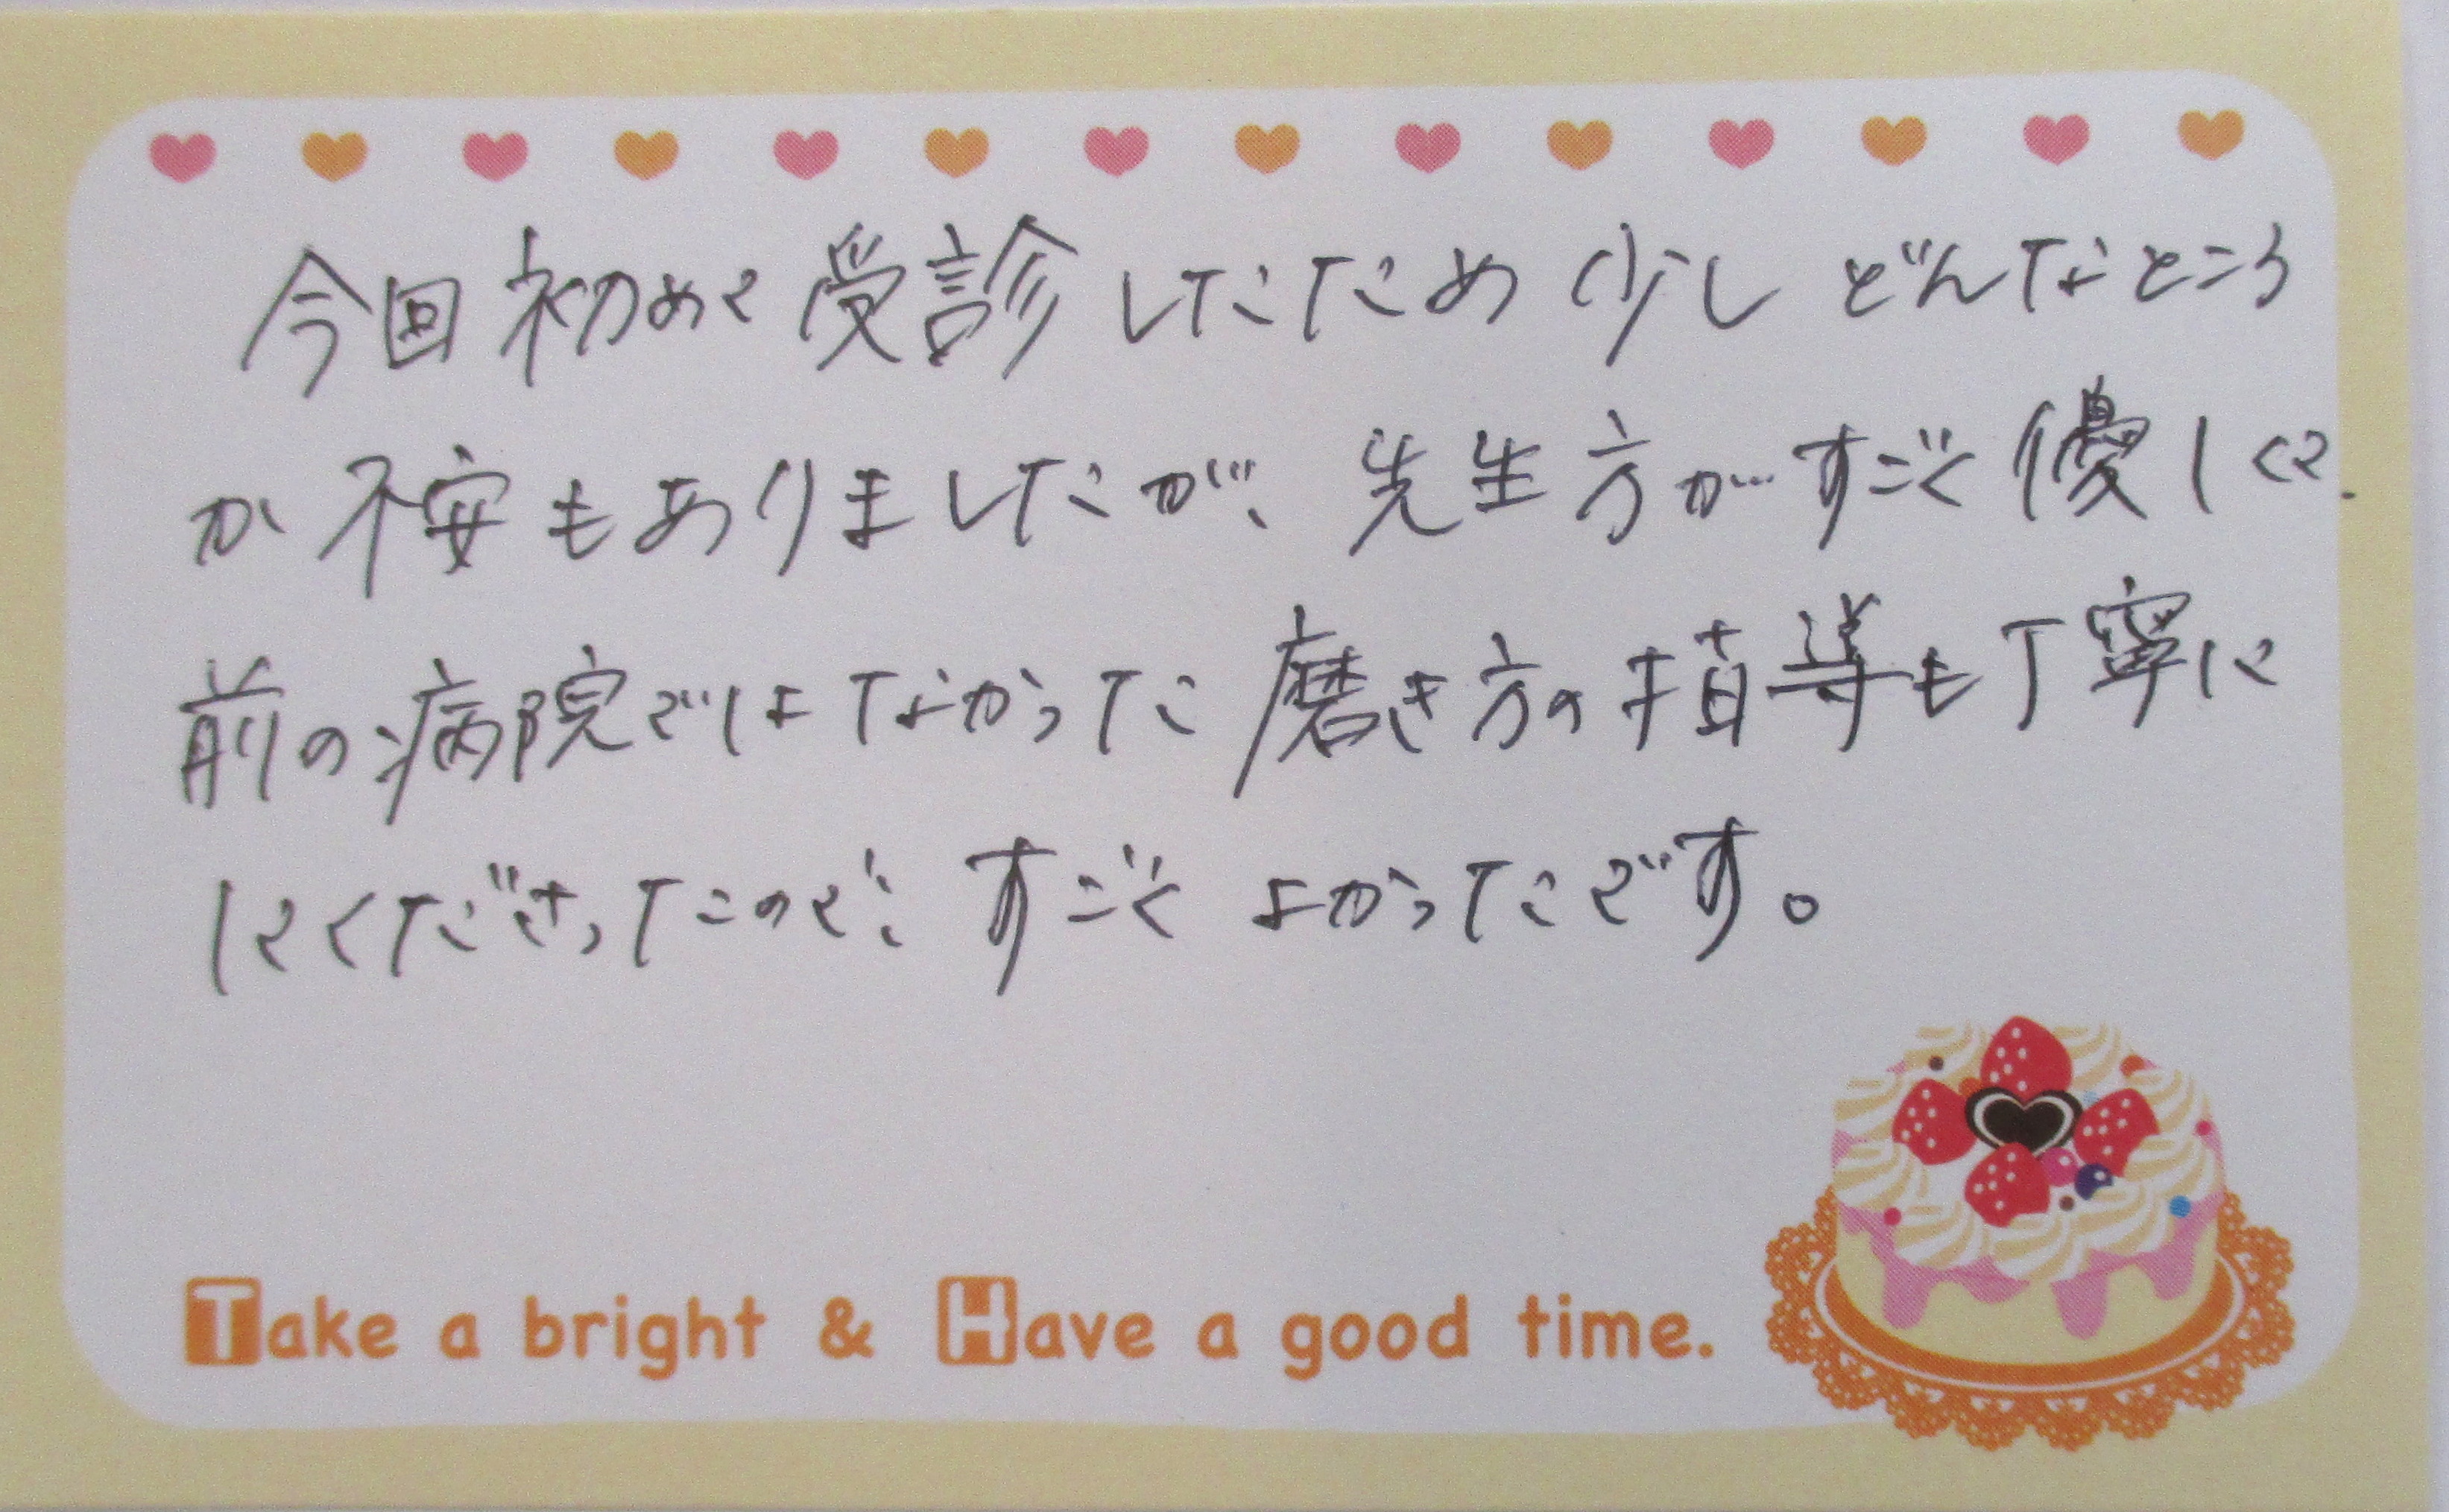 今回初めて受診したため少しどんなところ
か不安もありましたが、先生方がすごく優しくて、
前の病院ではなかった磨き方の指導も丁寧に
してくださったので、すごくよかったです。
Take a bright & Have a good time.